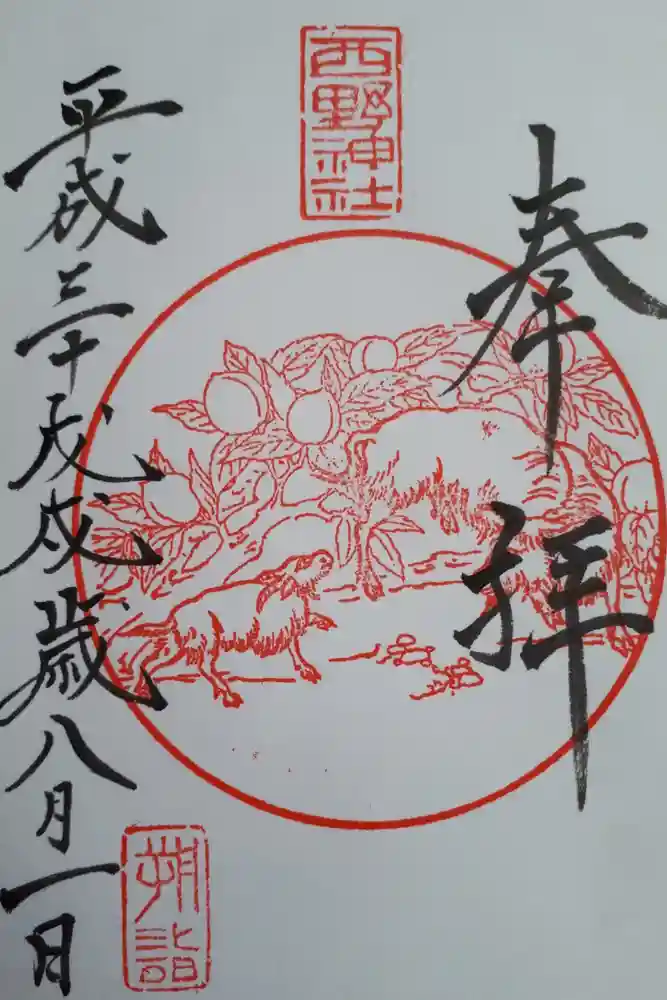 奉拝
西野神社
平成三十戊戌歳八月一日
朔詣